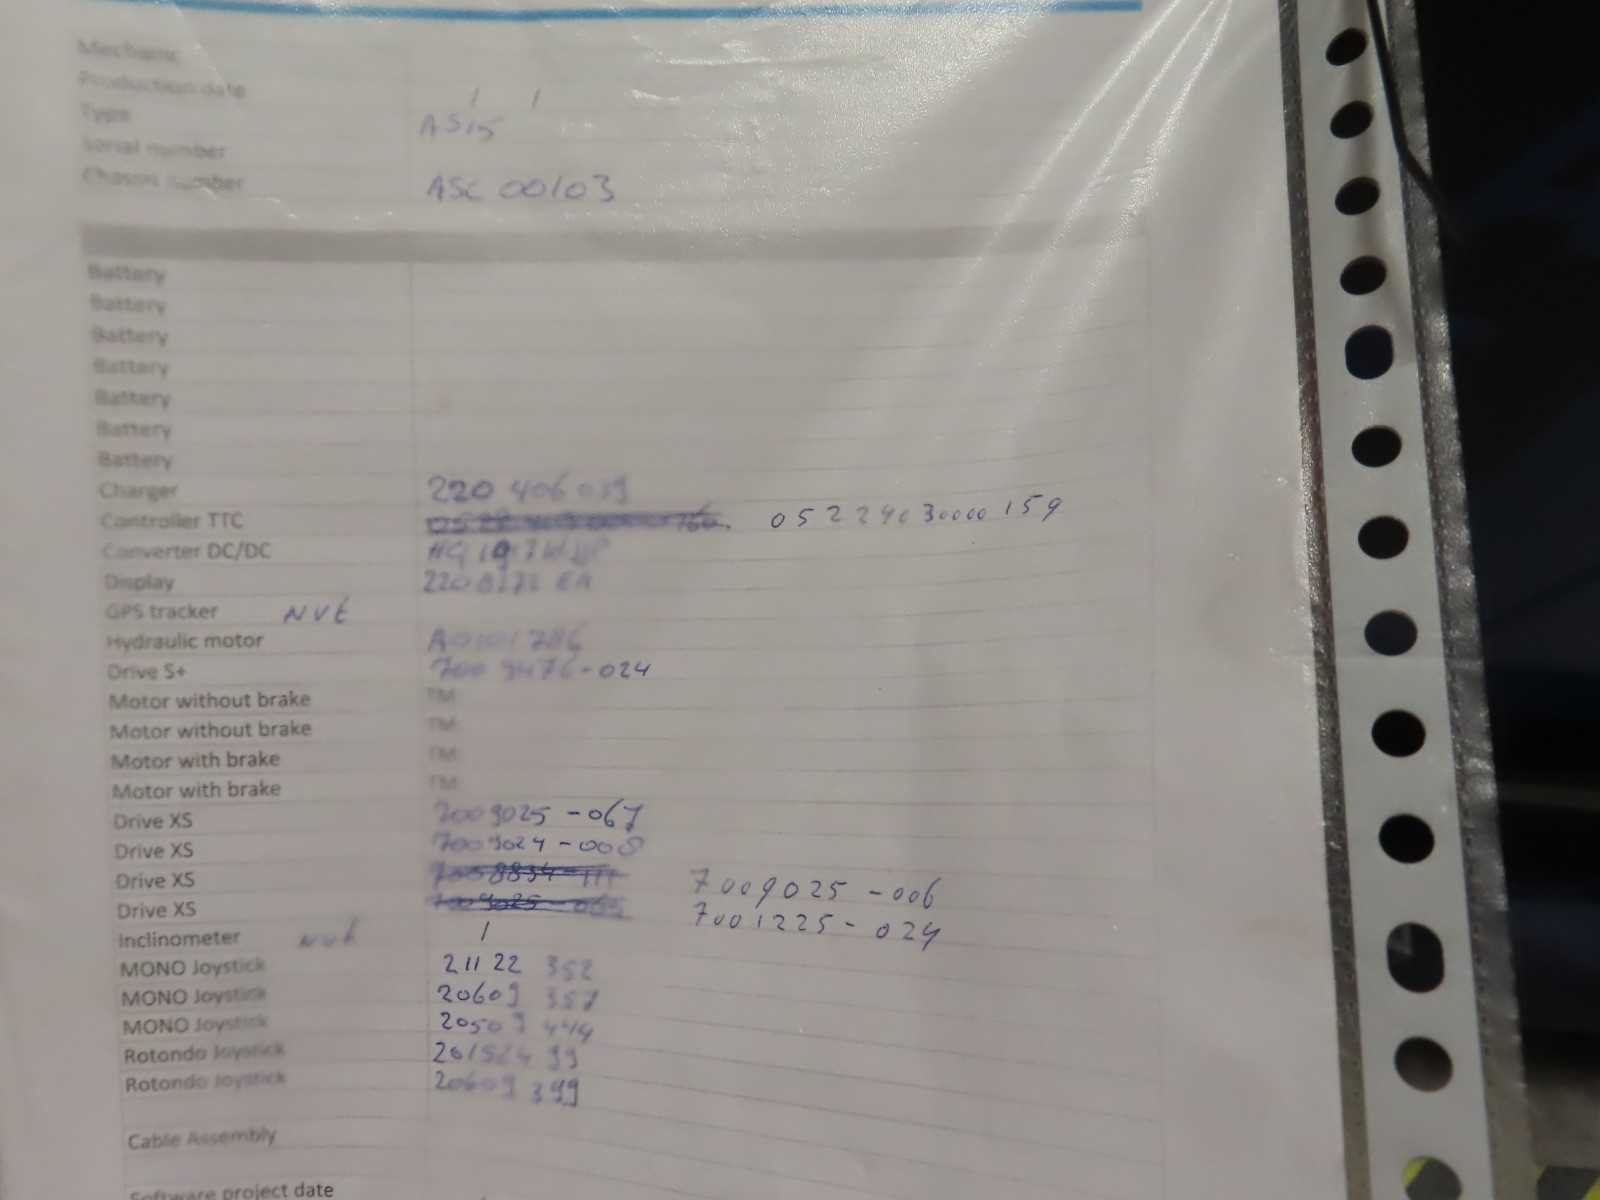 Mechanic
Production date / /
Type AS15
Serial number
Chassis number ASC 00103
Battery
Battery
Battery
Battery
Battery
Battery
Battery
Charger 220 406 039
Controller TTC 05229030000159
Converter DC/DC
Display
GPS tracker NVT
Hydraulic motor
Drive S+ 700 9476-024
Motor without brake TM
Motor without brake TM
Motor with brake TM
Motor with brake TM
Drive XS 7009025-067
Drive XS 7009024-008
Drive XS 7008834-111 7009025-006
Drive XS 7001225-024
Inclinometer NVT /
MONO Joystick 21122 352
MONO Joystick 20609 357
MONO Joystick 20509 444
Rotondo Joystick 201524 99
Rotondo Joystick 20609 399
Cable Assembly
Software project date